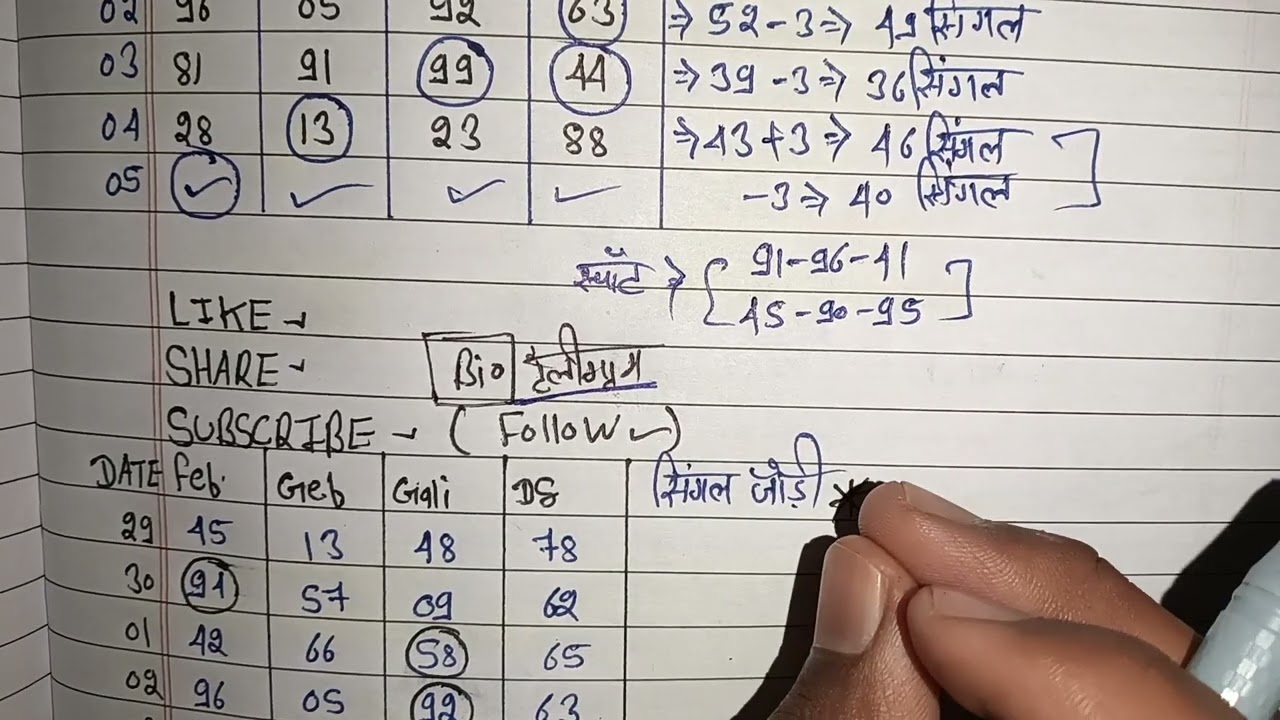 02 96 05 92 63 ⇒ 52-3 ⇒ 49 सिंगल
03 81 91 99 44 ⇒ 39-3 ⇒ 36 सिंगल
04 28 13 23 88 ⇒ 43+3 ⇒ 46 सिंगल
05 ✓ ✓ ✓ ✓ -3 ⇒ 40 सिंगल
91-96-41
45-90-95
LIKE
SHARE Bio टेलीग्राम
SUBSCRIBE (Follow ✓)
DATE Feb. Geb Giali DS सिंगल जोड़ी *
29 45 13 48 78
30 91 57 09 62
01 42 66 58 65
02 96 05 92 63